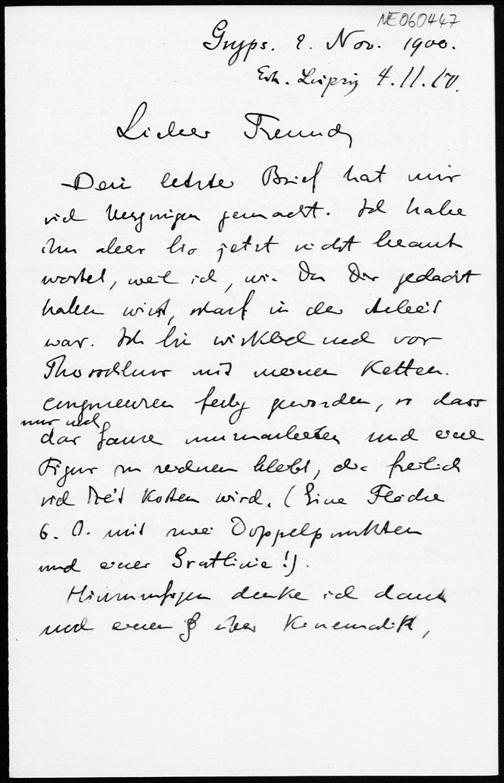 NE060447
Gryps. 2. Nov. 1900.
Erh. Leipzig 4.11.00.
Lieber Freund,
Dein letzter Brief hat mir
viel Vergnügen gemacht. Ich habe
ihn aber bis jetzt nicht beant
wortet, weil ich, wie Du Dir gedacht
haben wirst, scharf in der Arbeit
war. Ich bin wirklich und vor
Thorschluss mit meinen Ketten.
congruenzen fertig geworden, so dass
nur noch
das Ganze umzuarbeiten und eine
Figur zu zeichnen bleibt, die freilich
viel Zeit kosten wird. (Eine Fläche
6. O. mit zwei Doppelpunkten
und einer Gratlinie!).
Hinzuzufügen denke ich dann
noch einen § über Kinematik,